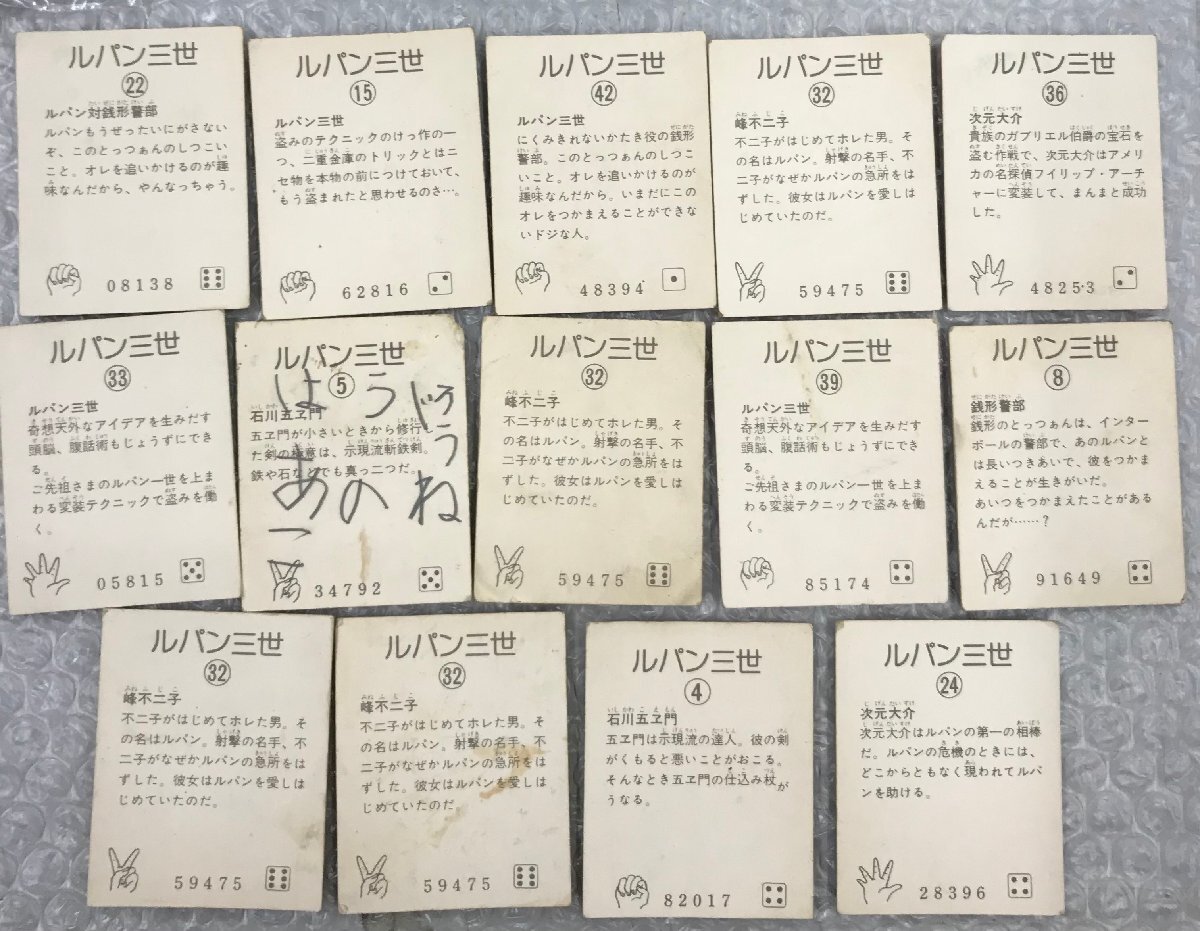 ルパン三世
22
ルパン対銭形警部
ルパンもうぜったいにがさない
ぞ、このとっつぁんのしつこい
こと。オレを追いかけるのが趣
味なんだから、やんなっちゃう。
08138
ルパン三世
15
ルパン三世
盗みのテクニックのけっ作の一
つ、二重金庫のトリックとはニ
セ物を本物の前につけておいて、
もう盗まれたと思わせるのさ…。
62816
ルパン三世
42
ルパン三世
にくみきれないかたき役の銭形
警部。このとっつぁんのしつこ
いこと。オレを追いかけるのが
趣味なんだから。いまだにこの
オレをつかまえることができな
いドジな人。
48394
ルパン三世
32
峰不二子
不二子がはじめてホレた男。そ
の名はルパン。射撃の名手、不
二子がなぜかルパンの急所をは
ずした。彼女はルパンを愛しは
じめていたのだ。
59475
ルパン三世
36
次元大介
貴族のガブリエル伯爵の宝石を
盗む作戦で、次元大介はアメリ
カの名探偵フイリップ・アーチ
ャーに変装して、まんまと成功
した。
48253
ルパン三世
33
ルパン三世
奇想天外なアイデアを生みだす
頭脳、腹話術もじょうずにでき
る。
ご先祖さまのルパン一世を上ま
わる変装テクニックで盗みを働
く。
05815
ルパン三世
5
石川五ヱ門
五ヱ門が小さいときから修行し
た剣の極意は、示現流斬鉄剣。
鉄や石などでも真っ二つだ。
34792
ルパン三世
32
峰不二子
不二子がはじめてホレた男。そ
の名はルパン。射撃の名手、不
二子がなぜかルパンの急所をは
ずした。彼女はルパンを愛しは
じめていたのだ。
59475
ルパン三世
39
ルパン三世
奇想天外なアイデアを生みだす
頭脳、腹話術もじょうずにでき
る。
ご先祖さまのルパン一世を上ま
わる変装テクニックで盗みを働
く。
85174
ルパン三世
8
銭形警部
銭形のとっつぁんは、インター
ポールの警部で、あのルパンと
は長いつきあいで、彼をつかま
えることが生きがいだ。
あいつをつかまえたことがある
んだが……？
91649
ルパン三世
32
峰不二子
不二子がはじめてホレた男。そ
の名はルパン。射撃の名手、不
二子がなぜかルパンの急所をは
ずした。彼女はルパンを愛しは
じめていたのだ。
59475
ルパン三世
32
峰不二子
不二子がはじめてホレた男。そ
の名はルパン。射撃の名手、不
二子がなぜかルパンの急所をは
ずした。彼女はルパンを愛しは
じめていたのだ。
59475
ルパン三世
4
石川五ヱ門
五ヱ門は示現流の達人。彼の剣
がくもると悪いことがおこる。
そんなとき五ヱ門の仕込み杖が
うなる。
82017
ルパン三世
24
次元大介
次元大介はルパンの第一の相棒
だ。ルパンの危機のときには、
どこからともなく現われてルパ
ンを助ける。
28396